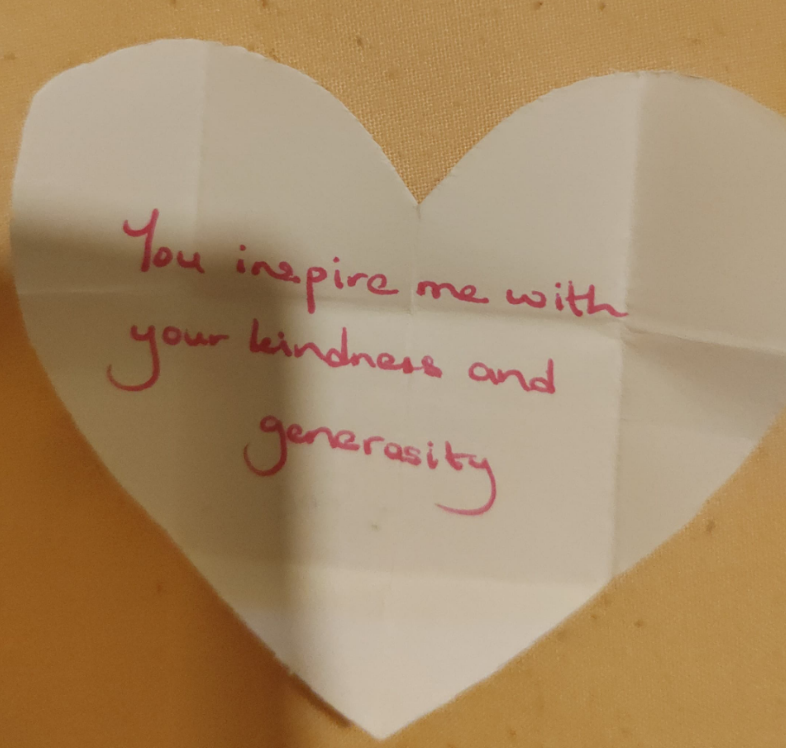 You inspire me with
your kindness and
generosity